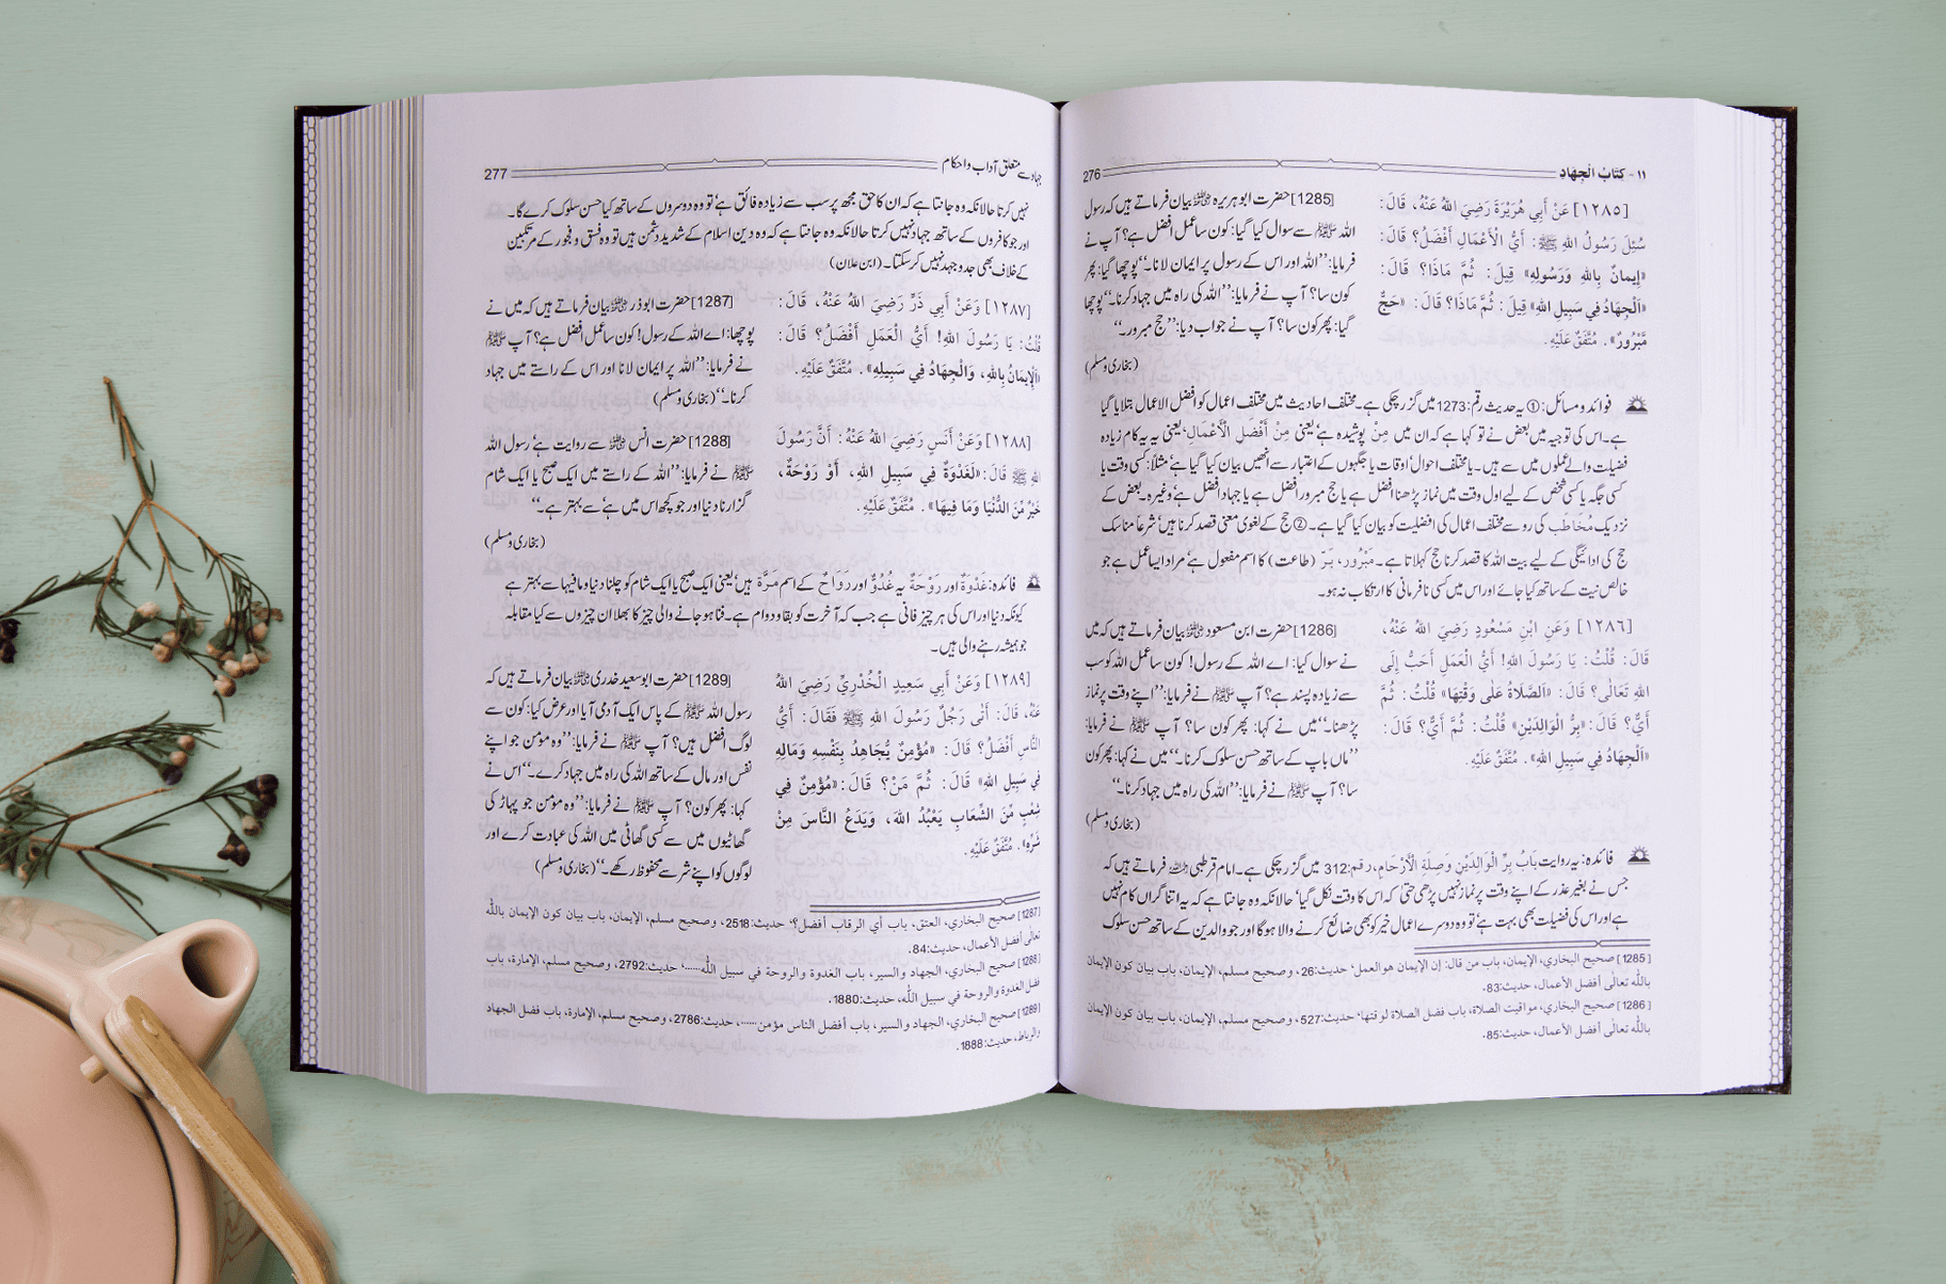 ١١ - كِتَابُ الْجِهَادِ
276
[١٢٨٥] عَنْ أَبِي هُرَيْرَةَ رَضِيَ اللهُ عَنْهُ، قَالَ:
سُئِلَ رَسُولُ اللهِ ﷺ: أَيُّ الْأَعْمَالِ أَفْضَلُ؟ قَالَ:
«إِيمانٌ بِاللهِ وَرَسُولِهِ» قِيلَ: ثُمَّ مَاذَا؟ قَالَ:
«اَلْجِهَادُ فِي سَبِيلِ اللهِ» قِيلَ: ثُمَّ مَاذَا؟ قَالَ: «حَجٌّ
مَّبْرُورٌ». مُتَّفَقٌ عَلَيْهِ.
[1285] حضرت ابو ہریرہ ﷜ بیان فرماتے ہیں کہ رسول
اللہ ﷺ سے سوال کیا گیا: کون سا عمل افضل ہے؟ آپ نے
فرمایا: ’’اللہ اور اس کے رسول پر ایمان لانا۔‘‘ پوچھا گیا: پھر
کون سا؟ آپ نے فرمایا: ’’اللہ کی راہ میں جہاد کرنا۔‘‘ پوچھا
گیا: پھر کون سا؟ آپ نے جواب دیا: ’’حج مبرور۔‘‘
(بخاری و مسلم)
فوائد و مسائل: ① یہ حدیث رقم: 1273 میں گزر چکی ہے۔ مختلف احادیث میں مختلف اعمال کو افضل الاعمال بتلایا گیا
ہے۔ اس کی توجیہ میں بعض نے تو کہا ہے کہ ان میں مِنْ پوشیدہ ہے، یعنی مِنْ أَفْضَلِ الْأَعْمَالِ، یعنی یہ یہ کام زیادہ
فضیلت والے عملوں میں سے ہیں۔ یا مختلف احوال، اوقات یا جگہوں کے اعتبار سے انھیں بیان کیا گیا ہے، مثلاً: کسی وقت یا
کسی جگہ یا کسی شخص کے لیے اول وقت میں نماز پڑھنا افضل ہے یا حج مبرور افضل ہے یا جہاد افضل ہے، وغیرہ۔ بعض کے
نزدیک مُخَاطَب کی رو سے مختلف اعمال کی افضلیت کو بیان کیا گیا ہے۔ ② حج کے لغوی معنی قصد کرنا ہیں، شرعاً مناسک
حج کی ادائیگی کے لیے بیت اللہ کا قصد کرنا حج کہلاتا ہے۔ مَبْرُور، بِرّ (طاعت) کا اسم مفعول ہے، مراد ایسا عمل ہے جو
خالص نیت کے ساتھ کیا جائے اور اس میں کسی نافرمانی کا ارتکاب نہ ہو۔
[١٢٨٦] وَعَنِ ابْنِ مَسْعُودٍ رَضِيَ اللهُ عَنْهُ،
قَالَ: قُلْتُ: يَا رَسُولَ اللهِ! أَيُّ الْعَمَلِ أَحَبُّ إِلَى
اللهِ تَعَالٰى؟ قَالَ: «اَلصَّلَاةُ عَلٰى وَقْتِهَا» قُلْتُ: ثُمَّ
أَيٌّ؟ قَالَ: «بِرُّ الْوَالِدَيْنِ» قُلْتُ: ثُمَّ أَيٌّ؟ قَالَ:
«اَلْجِهَادُ فِي سَبِيلِ اللهِ». مُتَّفَقٌ عَلَيْهِ.
[1286] حضرت ابن مسعود ﷜ بیان فرماتے ہیں کہ میں
نے سوال کیا: اے اللہ کے رسول! کون سا عمل اللہ کو سب
سے زیادہ پسند ہے؟ آپ ﷺ نے فرمایا: ’’اپنے وقت پر نماز
پڑھنا۔‘‘ میں نے کہا: پھر کون سا؟ آپ ﷺ نے فرمایا:
’’ماں باپ کے ساتھ حسن سلوک کرنا۔‘‘ میں نے کہا: پھر کون
سا؟ آپ ﷺ نے فرمایا: ’’اللہ کی راہ میں جہاد کرنا۔‘‘
(بخاری و مسلم)
فائدہ: یہ روایت بَابُ بِرِّ الْوَالِدَيْنِ وَصِلَةِ الْأَرْحَامِ، رقم: 312 میں گزر چکی ہے۔ امام قرطبی ﷫ فرماتے ہیں کہ
جس نے بغیر عذر کے اپنے وقت پر نماز نہیں پڑھی حتی کہ اس کا وقت نکل گیا، حالانکہ وہ جانتا ہے کہ یہ اتنا گراں کام نہیں
ہے اور اس کی فضیلت بھی بہت ہے، تو وہ دوسرے اعمال خیر کو بھی ضائع کرنے والا ہوگا اور جو والدین کے ساتھ حسن سلوک
[1285] صحيح البخاري، الإيمان، باب من قال: إن الإيمان هو العمل، حديث:26، وصحيح مسلم، الإيمان، باب بيان كون الإيمان
بالله تعالى أفضل الأعمال، حديث:83.
[1286] صحيح البخاري، مواقيت الصلاة، باب فضل الصلاة لوقتها، حديث:527، وصحيح مسلم، الإيمان، باب بيان كون الإيمان
بالله تعالى أفضل الأعمال، حديث:85.
جہاد سے متعلق آداب و احکام
277
نہیں کرتا حالانکہ وہ جانتا ہے کہ ان کا حق مجھ پر سب سے زیادہ فائق ہے، تو وہ دوسروں کے ساتھ کیا حسن سلوک کرے گا۔
اور جو کافروں کے ساتھ جہاد نہیں کرتا حالانکہ وہ جانتا ہے کہ وہ دین اسلام کے شدید دشمن ہیں تو وہ فسق و فجور کے مرتکبین
کے خلاف بھی جدوجہد نہیں کر سکتا۔ (ابن علان)
[١٢٨٧] وَعَنْ أَبِي ذَرٍّ رَضِيَ اللهُ عَنْهُ، قَالَ:
قُلْتُ: يَا رَسُولَ اللهِ! أَيُّ الْعَمَلِ أَفْضَلُ؟ قَالَ:
«اَلْإِيمَانُ بِاللهِ، وَالْجِهَادُ فِي سَبِيلِهِ». مُتَّفَقٌ عَلَيْهِ.
[1287] حضرت ابوذر ﷜ بیان فرماتے ہیں کہ میں نے
پوچھا: اے اللہ کے رسول! کون سا عمل افضل ہے؟ آپ ﷺ
نے فرمایا: ’’اللہ پر ایمان لانا اور اس کے راستے میں جہاد
کرنا۔‘‘ (بخاری و مسلم)
[١٢٨٨] وَعَنْ أَنَسٍ رَضِيَ اللهُ عَنْهُ: أَنَّ رَسُولَ
اللهِ ﷺ قَالَ: «لَغَدْوَةٌ فِي سَبِيلِ اللهِ، أَوْ رَوْحَةٌ،
خَيْرٌ مِّنَ الدُّنْيَا وَمَا فِيهَا». مُتَّفَقٌ عَلَيْهِ.
[1288] حضرت انس ﷜ سے روایت ہے، رسول اللہ
ﷺ نے فرمایا: ’’اللہ کے راستے میں ایک صبح یا ایک شام
گزارنا دنیا اور جو کچھ اس میں ہے، سے بہتر ہے۔‘‘
(بخاری و مسلم)
فائدہ: غَدْوَةٌ اور رَوْحَةٌ یہ غُدُوٌّ اور رَوَاحٌ کے اسم مَرَّة ہیں، یعنی ایک صبح یا ایک شام کو چلنا دنیا و مافیہا سے بہتر ہے
کیونکہ دنیا اور اس کی ہر چیز فانی ہے جب کہ آخرت کو بقا و دوام ہے۔ فنا ہو جانے والی چیز کا بھلا ان چیزوں سے کیا مقابلہ
جو ہمیشہ رہنے والی ہیں۔
[١٢٨٩] وَعَنْ أَبِي سَعِيدٍ الْخُدْرِيِّ رَضِيَ اللهُ
عَنْهُ، قَالَ: أَتٰى رَجُلٌ رَسُولَ اللهِ ﷺ فَقَالَ: أَيُّ
النَّاسِ أَفْضَلُ؟ قَالَ: «مُؤْمِنٌ يُّجَاهِدُ بِنَفْسِهِ وَمَالِهِ
فِي سَبِيلِ اللهِ» قَالَ: ثُمَّ مَنْ؟ قَالَ: «مُؤْمِنٌ فِي
شِعْبٍ مِّنَ الشِّعَابِ يَعْبُدُ اللهَ، وَيَدَعُ النَّاسَ مِنْ
شَرِّهِ». مُتَّفَقٌ عَلَيْهِ.
[1289] حضرت ابوسعید خدری ﷜ بیان فرماتے ہیں کہ
رسول اللہ ﷺ کے پاس ایک آدمی آیا اور عرض کیا: کون سے
لوگ افضل ہیں؟ آپ ﷺ نے فرمایا: ’’وہ مومن جو اپنے
نفس اور مال کے ساتھ اللہ کی راہ میں جہاد کرے۔‘‘ اس نے
کہا: پھر کون؟ آپ ﷺ نے فرمایا: ’’وہ مومن جو پہاڑ کی
گھاٹیوں میں سے کسی گھاٹی میں اللہ کی عبادت کرے اور
لوگوں کو اپنے شر سے محفوظ رکھے۔‘‘ (بخاری و مسلم)
[1287] صحيح البخاري، العتق، باب أي الرقاب أفضل؟، حديث:2518، وصحيح مسلم، الإيمان، باب بيان كون الإيمان بالله
تعالى أفضل الأعمال، حديث:84.
[1288] صحيح البخاري، الجهاد والسير، باب الغدوة والروحة في سبيل الله......، حديث:2792، وصحيح مسلم، الإمارة، باب
فضل الغدوة والروحة في سبيل الله، حديث:1880.
[1289] صحيح البخاري، الجهاد والسير، باب أفضل الناس مؤمن......، حديث:2786، وصحيح مسلم، الإمارة، باب فضل الجهاد
والرباط، حديث:1888.